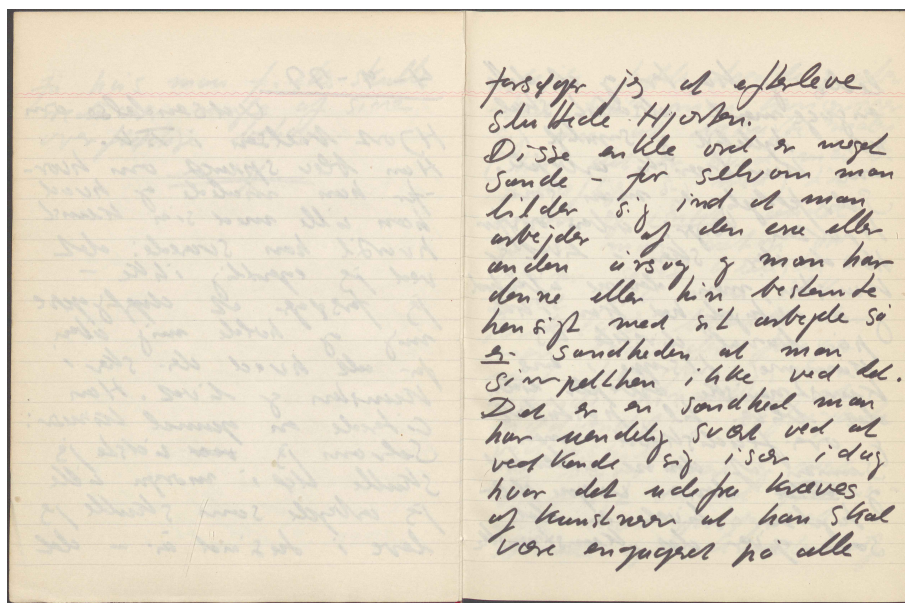 forsøger jeg at efterleve
sluttede Hjorten.
Disse enkle ord er meget
sande – for selvom man
bilder sig ind at man
arbejder af den ene eller
anden årsag og man har
denne eller hin bestemte
hensigt med sit arbejde så
er sandheden at man
simpelthen ikke ved det.
Det er en sandhed man
har uendelig svært ved at
vedkende sig især idag
hvor det udefra kræves
af kunstneren at han skal
være engageret på alle